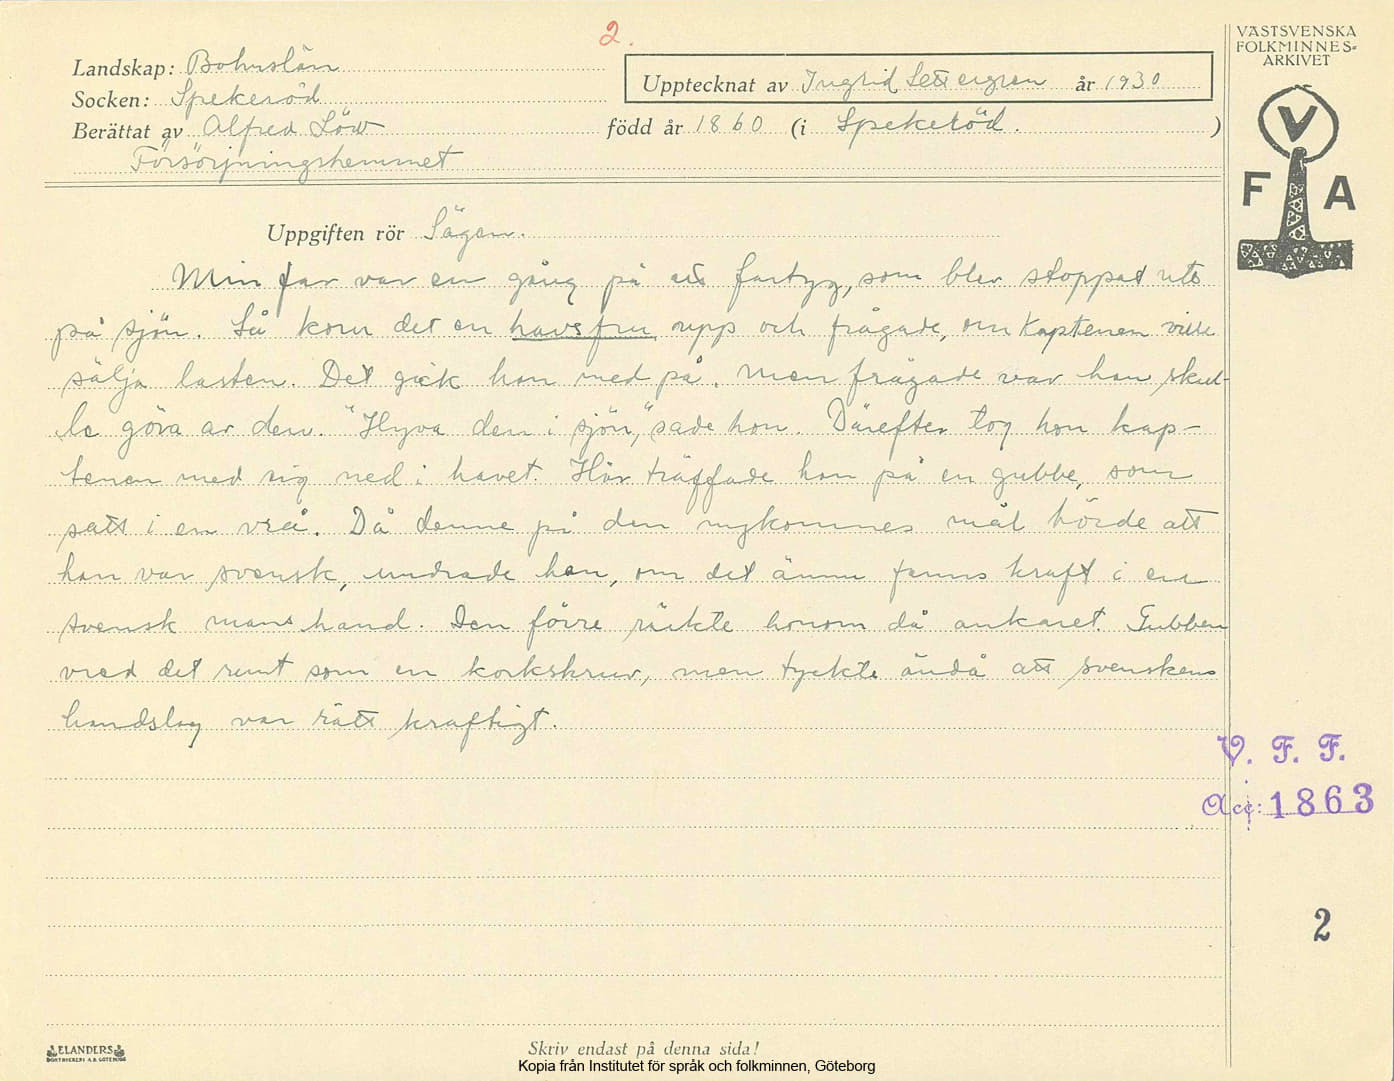 2.
VÄSTSVENSKA
FOLKMINNES-
ARKIVET
Landskap: Bohuslän
Upptecknat av Ingrid Settergren år 1930
Socken: Spekeröd
Berättat av Alfred Löw född år 1860 (i Spekeröd. )
Försörjningshemmet
V
F A
Uppgiften rör Sägen.
Min far var en gång på ett fartyg, som blev stoppat ute
på sjön. Så kom det en havsfru upp och frågade, om kaptenen ville
sälja lasten. Det gick han med på. Men frågade var hon skul-
le göra av den. "Hyva den i sjön," sade hon. Därefter tog hon kap-
tenen med sig ned i havet. Här träffade han på en gubbe, som
satt i en vrå. Då denne på den nykomnes mål hörde att
han var svensk, undrade han, om det ännu fanns kraft i en
svensk mans hand. Den förre räckte honom då ankaret. Gubben
vred det runt som en korkskruv, men tyckte ändå att svenskens
handslag var rätt kraftigt.
V. F. F.
Acc: 1863
2
ELANDERS
BOKTRYCKERI A.B. GÖTEBORG
Skriv endast på denna sida!
Kopia från Institutet för språk och folkminnen, Göteborg